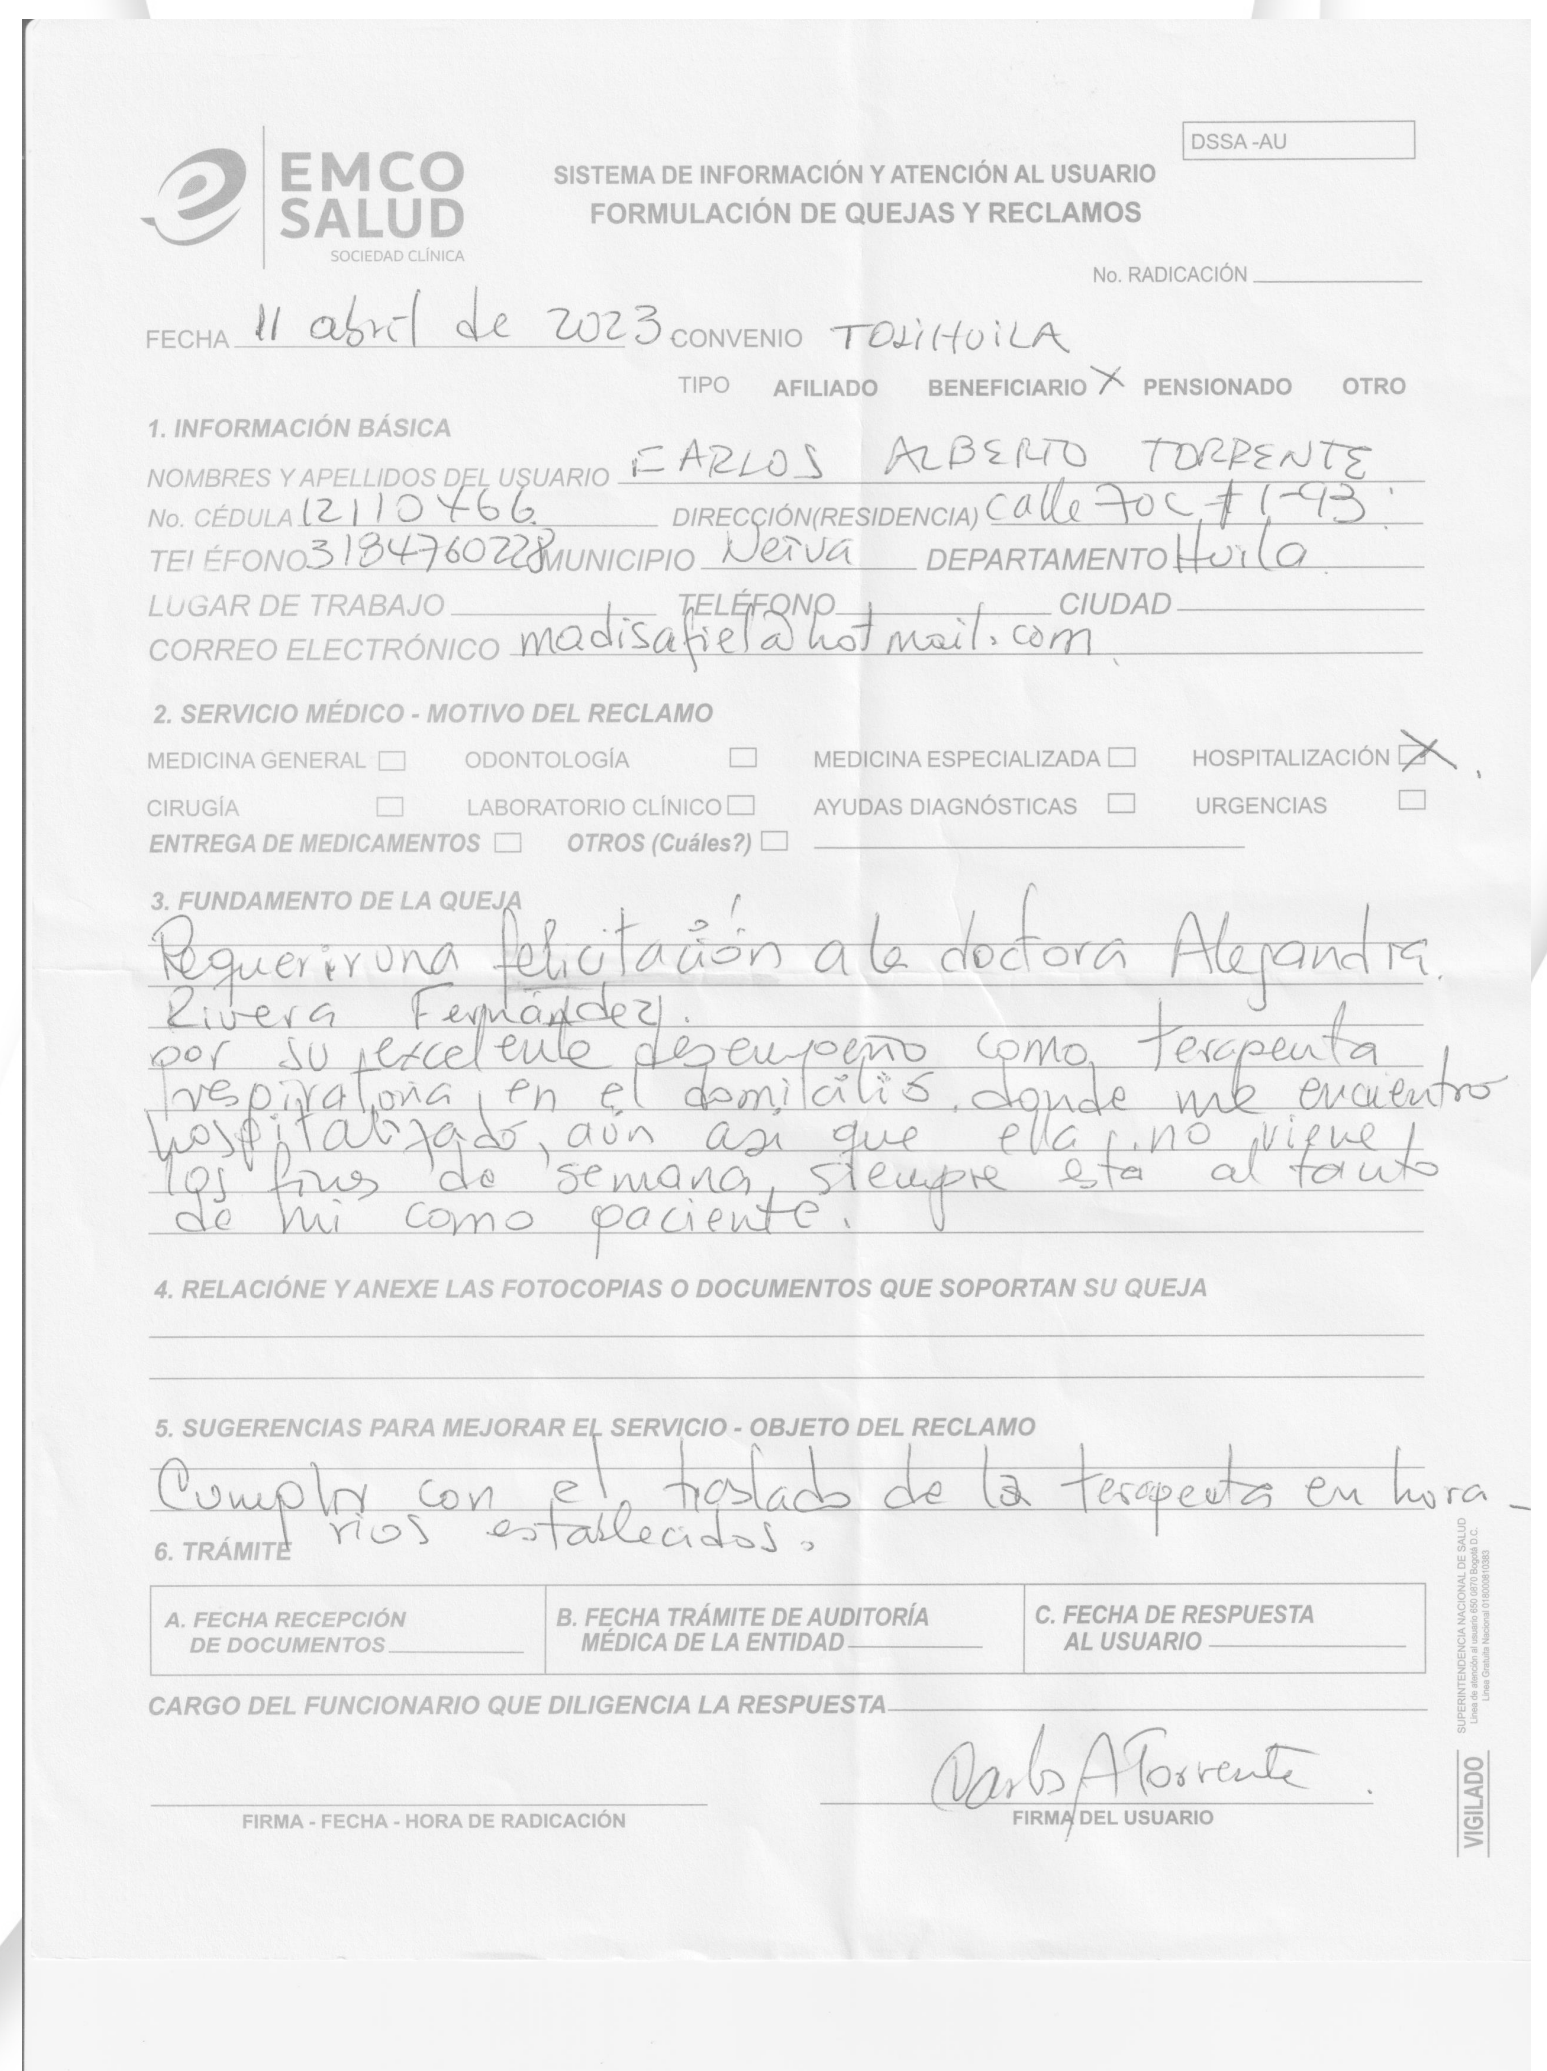 DSSA -AU
EMCO
SALUD
SOCIEDAD CLÍNICA
SISTEMA DE INFORMACIÓN Y ATENCIÓN AL USUARIO
FORMULACIÓN DE QUEJAS Y RECLAMOS
No. RADICACIÓN
FECHA 11 abril de 2023 CONVENIO TOLIHUILA
TIPO AFILIADO BENEFICIARIO X PENSIONADO OTRO
1. INFORMACIÓN BÁSICA
NOMBRES Y APELLIDOS DEL USUARIO CARLOS ALBERTO TORRENTE
No. CÉDULA 12110466 DIRECCIÓN(RESIDENCIA) calle 70C # 1-93
TELÉFONO 3184760228 MUNICIPIO Neiva DEPARTAMENTO Huila
LUGAR DE TRABAJO TELÉFONO CIUDAD
CORREO ELECTRÓNICO madisafiel@hotmail.com
2. SERVICIO MÉDICO - MOTIVO DEL RECLAMO
MEDICINA GENERAL ODONTOLOGÍA MEDICINA ESPECIALIZADA HOSPITALIZACIÓN X
CIRUGÍA LABORATORIO CLÍNICO AYUDAS DIAGNÓSTICAS URGENCIAS
ENTREGA DE MEDICAMENTOS OTROS (Cuáles?)
3. FUNDAMENTO DE LA QUEJA
Requerir una felicitación a la doctora Alejandra
Rivera Fernández.
por su excelente desempeño como terapeuta
respiratoria, en el domicilio donde me encuentro
hospitalizado, aún así que ella no viene
los fines de semana, siempre está al tanto
de mi como paciente.
4. RELACIÓNE Y ANEXE LAS FOTOCOPIAS O DOCUMENTOS QUE SOPORTAN SU QUEJA
5. SUGERENCIAS PARA MEJORAR EL SERVICIO - OBJETO DEL RECLAMO
Cumplir con el traslado de la terapeuta en hora-
rios establecidos.
6. TRÁMITE
A. FECHA RECEPCIÓN
DE DOCUMENTOS
B. FECHA TRÁMITE DE AUDITORÍA
MÉDICA DE LA ENTIDAD
C. FECHA DE RESPUESTA
AL USUARIO
CARGO DEL FUNCIONARIO QUE DILIGENCIA LA RESPUESTA
Carlos A Torrente
FIRMA - FECHA - HORA DE RADICACIÓN
FIRMA DEL USUARIO
SUPERINTENDENCIA NACIONAL DE SALUD
Línea de atención al usuario 650 0870 Bogotá D.C.
Línea Gratuita Nacional 018000810383
VIGILADO